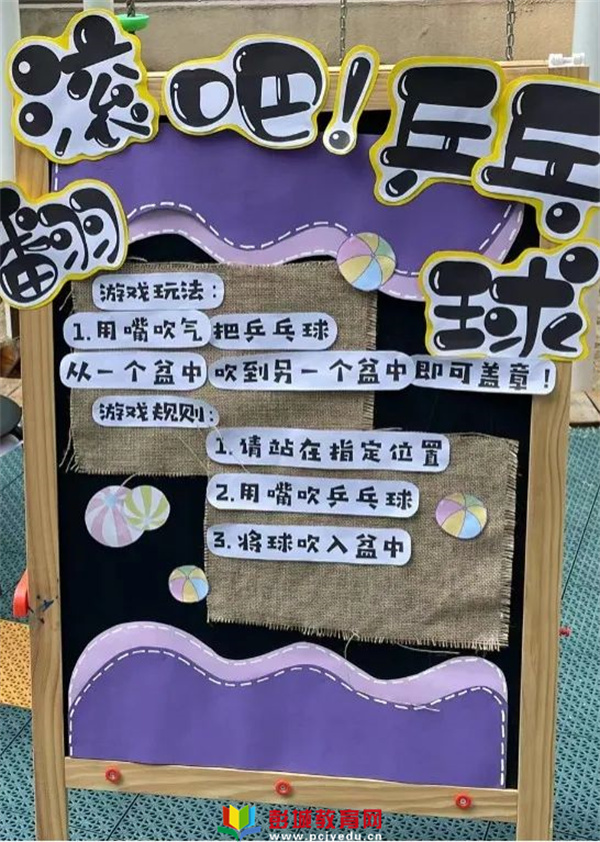 翻滚吧！乒乓球
游戏玩法：
1.用嘴吹气把乒乓球
从一个盆中吹到另一个盆中即可盖章！
游戏规则：
1.请站在指定位置
2.用嘴吹乒乓球
3.将球吹入盆中
彭城教育网
www.pcjyedu.cn